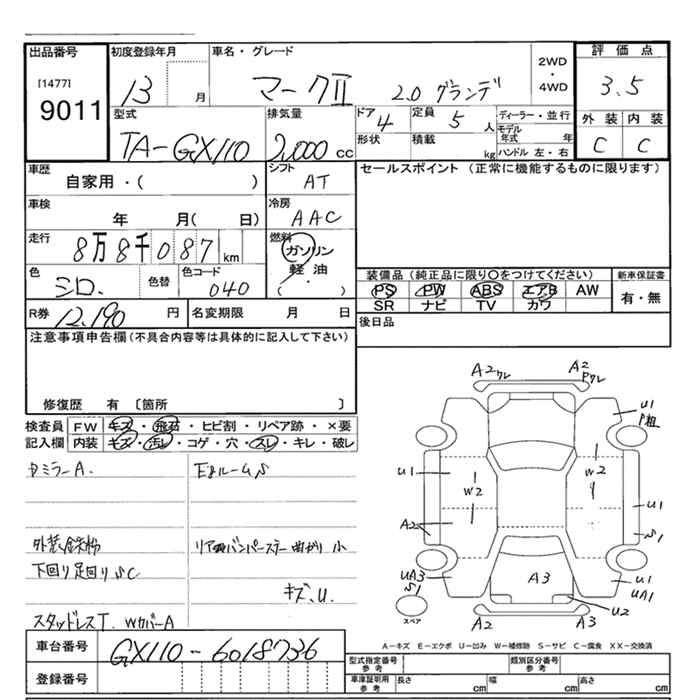 出品番号 初度登録年月 車名・グレード 2WD・4WD 評価点
[1477]
9011
13 月 マークII 2.0 グランデ 3.5
型式 排気量 ドア 定員 ディーラー・並行 外装 内装
TA-GX110 2,000 cc 4 5 人 モデル年式 年 C C
形状 積載 kg ハンドル 左・右
車歴 シフト セールスポイント (正常に機能するものに限ります)
自家用・( ) AT
車検 冷房
年 月( 日) AAC
走行 燃料
8万8千087 km ガソリン
軽油
( ・ )
色 色替 色コード 装備品 (純正品に限り○をつけてください) 新車保証書
シロ. 040 PS PW ABS エアB AW 有・無
SR ナビ TV カワ
R券 12,190 円 名変期限 月 日 後日品
注意事項申告欄(不具合内容等は具体的に記入して下さい)
修復歴 有 〔箇所 〕
検査員 FW キズ・飛石・ヒビ割・リペア跡・×要
記入欄 内装 キズ・汚レ・コゲ・穴・スレ・キレ・破レ
A2 ワレ A2 Pワレ
U1 P粗
U1 W2 W2 U1
A2 S1
UA3 S1 A3 U1 UA1
U2
スペア A2 A3
ミラーA. Eルーム.S
外装鉄粉 リアバンパーステー曲がり 小
下回り足回りSC
キズ、U.
スタッドレスT. WカバーA
A－キズ E－エクボ U－凹み W－補修跡 S－サビ C－腐食 XX－交換済
車台番号 GX110-6018736
登録番号
型式指定番号 参考 類別区分番号 参考
車庫証明用 参考 長さ cm 幅 cm 高さ cm